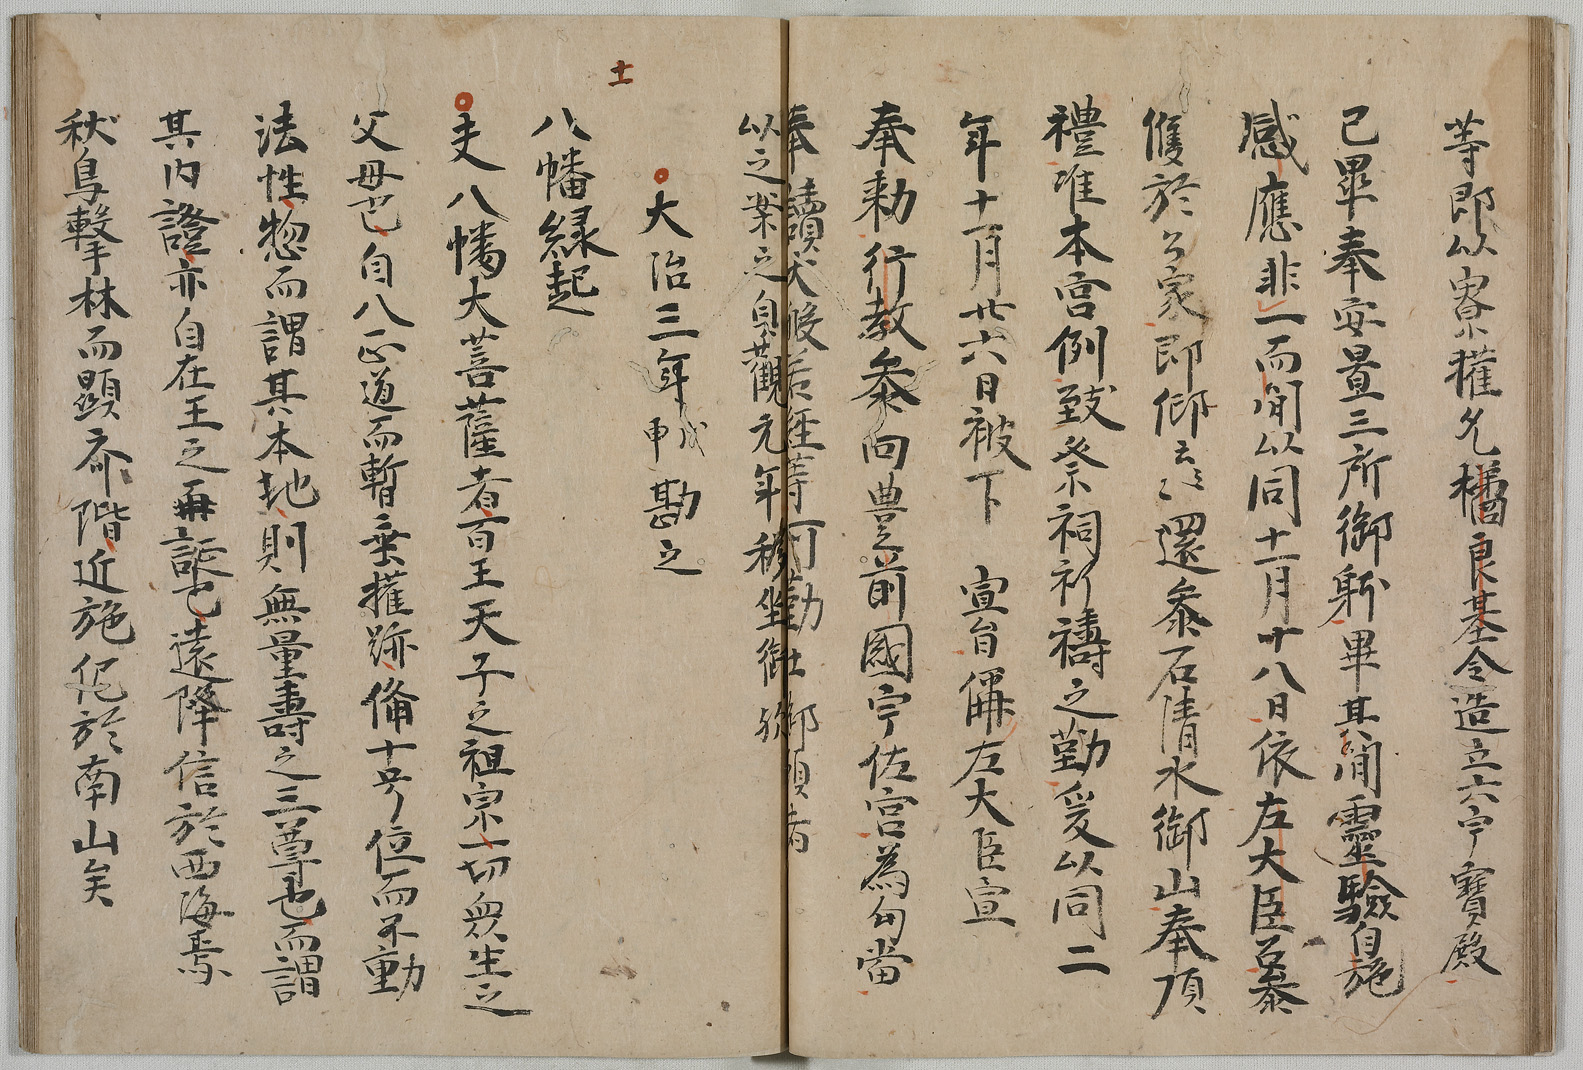 等即以寮權允橘良基令造立六宇寶殿
已畢奉安置三所御躰畢其間靈驗自施
感應非一而間以同十一月十八日依左大臣召参
俄於公家即仰云々還参石清水御山奉頂
禮准本宮例致祭祠祈禱之勤爰以同二
年十一月廿六日被下 宣旨偁左大臣宣
奉勅行教参向豊前國宇佐宮為勾當
奉讀大般若経等可勤仕御願者
以之案之貞觀元年移坐御歟
大治三年戊申勘之
十一
八幡縁起
夫八幡大菩薩者百王天子之祖宗一切衆生之
父母也自八正道而暫垂權跡備十号位而不動
法性惣而謂其本地則無量壽之三尊也而謂
其内證亦自在王之再誕也遠降信於西海焉
秋鳥擊林而顕 階近施化於南山矣